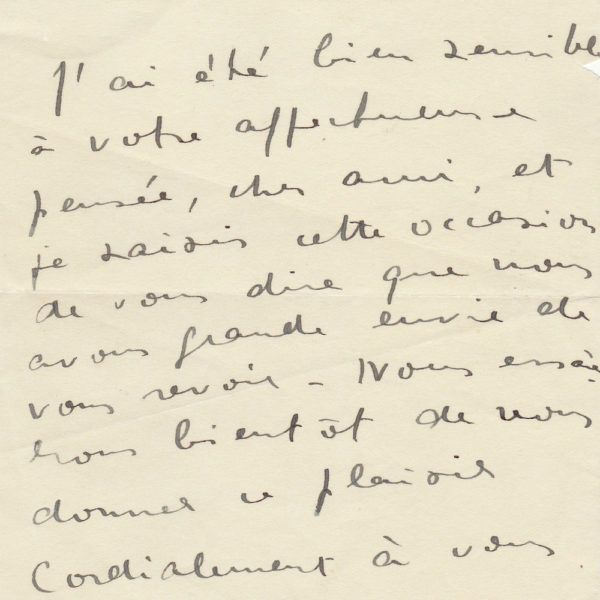 J'ai été bien sensible
à votre affectueuse
pensée, cher ami, et
je saisis cette occasion
de vous dire que nous
avons grande envie de
vous revoir - Nous essaie-
rons bientôt de nous
donner ce plaisir
Cordialement à vous